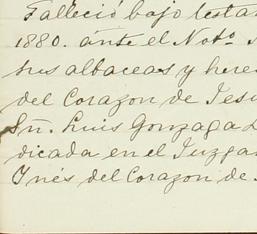 Falleció bajo testa
1880. ante el Notº
sus albaceas y here
del Corazon de Jesu
Sñ. Luis Gonzaga
dicada en el Juzga
Ynés del Corazon de